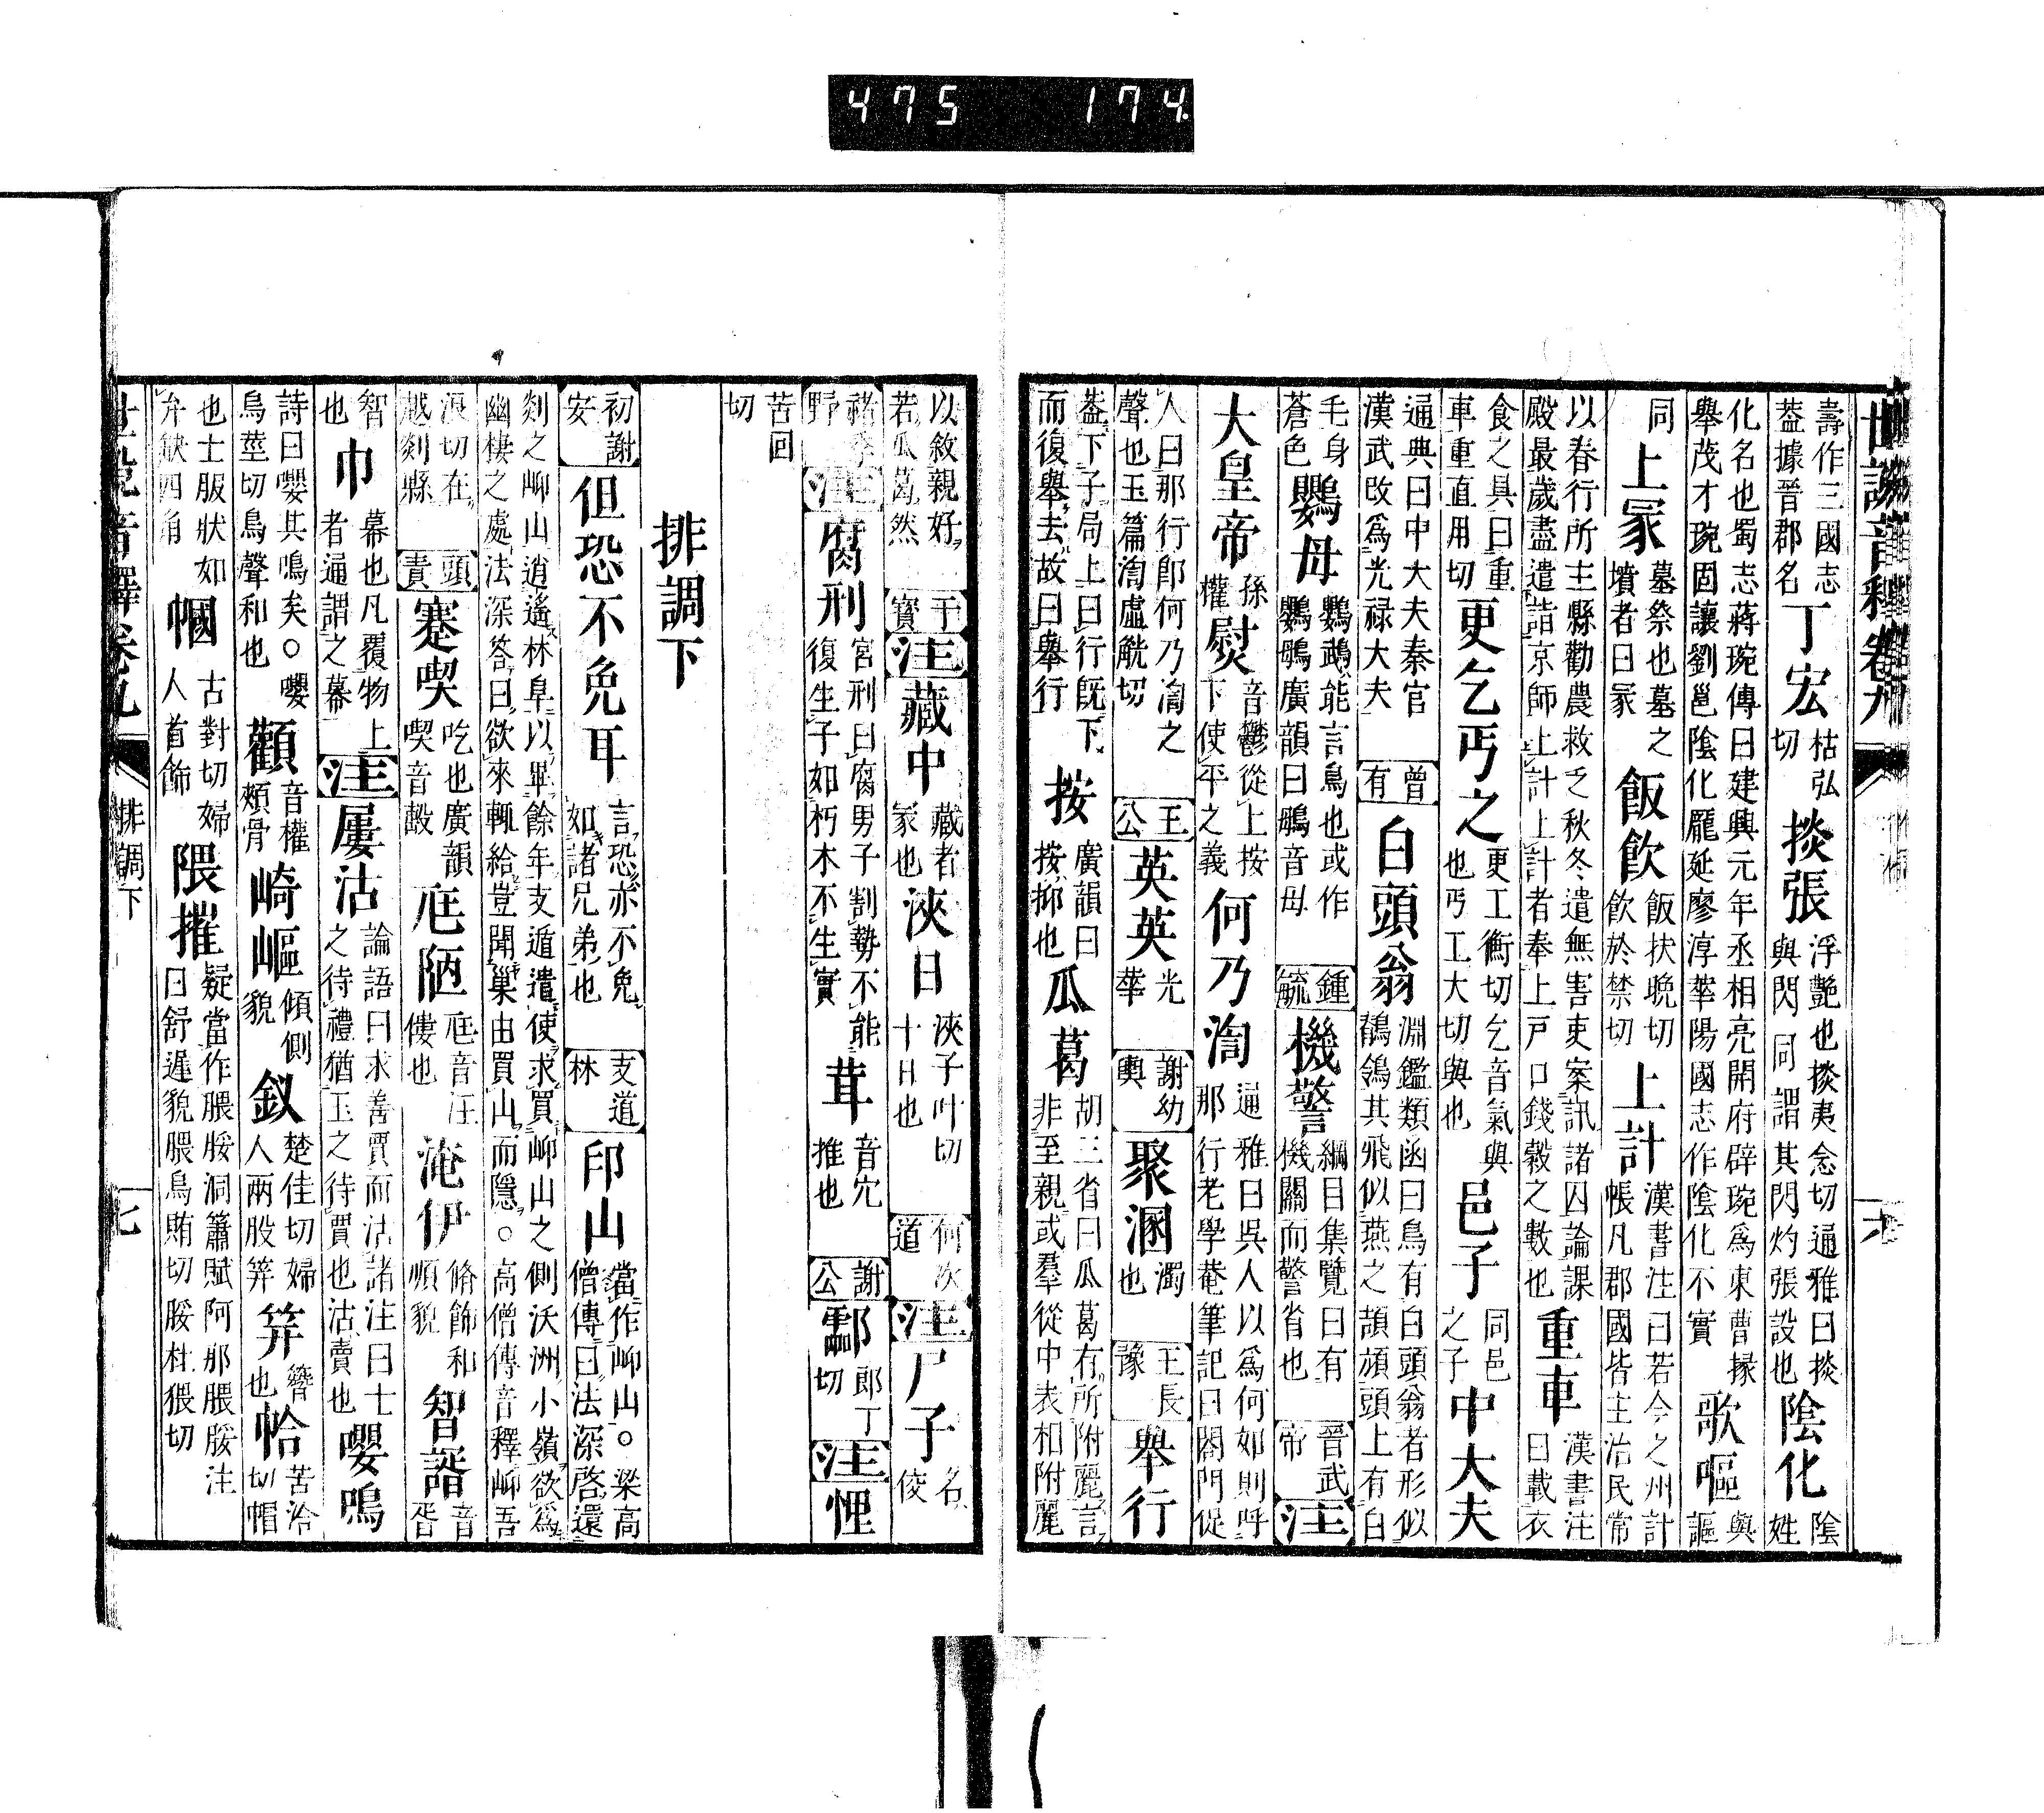 475 174.
世說音釋卷九
壽作三國志
葢據晉郡名
丁宏
枯弘
切
掞張
浮艷也掞夷念切通雅曰掞
與閃同謂其閃灼張設也
陰化
陰
姓
化名也蜀志蔣琬傳曰建興元年丞相亮開府辟琬爲東曹掾
舉茂才琬固讓劉邕陰化龎延廖淳華陽國志作陰化不實
歌嘔
與
謳
同
上冢
墓祭也墓之
墳者曰冢
飯飲
飯扶晚切
飲於禁切
上計
漢書注曰若今之州計
帳凡郡國皆主治民常
以春行所主縣勸農救乏秋冬遣無害吏案訊諸囚論課
殿最歲盡遣詣京師上計上計者奉上戸口錢穀之數也
重車
漢書注
曰載衣
食之具曰重
車重直用切
更乞丐之
更工衡切乞音氣與
也丐工大切與也
邑子
同邑
之子
中大夫
通典曰中大夫秦官
漢武攺爲光禄大夫
曾
有
白頭翁
淵鑑類函曰鳥有白頭翁者形似
鶺鴒其飛似燕之頡頏頭上有白
毛身
蒼色
鸚母
鸚鵡能言鳥也或作
鸚鴞廣韻曰鴞音母
鍾
毓
機警
綱目集覽曰有
機關而警省也
晉武
帝
注
大皇帝
孫
權
熨
音鬱從上按
下使平之義
何乃渹
通雅曰吳人以爲何如則呼
那行老學菴筆記曰閤門促
人曰那行郎何乃渹之
聲也玉篇渹虛觥切
王
公
英英
光
華
謝幼
輿
聚溷
濁
也
王長
豫
舉行
葢下子局上曰行既下
而復舉去故曰舉行
按
廣韻曰
按抑也
瓜葛
胡三省曰瓜葛有所附麗言
非至親或羣從中表相附麗
以敘親好
若瓜葛然
干
寶
注
藏中
藏者
冢也
浹日
浹子叶切
十日也
何次
道
注
尸子
名
佼
褚季
野
注
腐刑
宮刑曰腐男子割勢不能
復生子如朽木不生實
茸
音宂
推也
謝
公
酃
郎丁
切
注
悝
苦回
切
排調下
初謝
安
但恐不免耳
言恐亦不免
如諸兄弟也
支道
林
印山
當作岫山。梁高
僧傳曰法深啓還
剡之岫山逍遙林阜以畢餘年支遁遣使求買岫山之側沃洲小嶺欲爲
幽棲之處法深答曰欲來輒給豈聞巢由買山而隱。高僧傳音釋岫吾
浪切在
越剡縣
頭
責
蹇喫
吃也廣韻
喫音㰟
尫陋
尫音汪
僂也
淹伊
脩飾和
順貌
智諝
音
胥
智
也
巾
幕也凡覆物上
者逼謂之幕
注
屢沽
論語曰求善賈而沽諸注曰士
之待禮猶玉之待賈也沽賣也
嚶鳴
詩曰嚶其鳴矣。嚶
鳥莖切鳥聲和也
顴
音權
頰骨
崎嶇
傾側
貌
釵
楚佳切婦
人兩股筓
筓
簪
也
帢
苦洽
切帽
也士服狀如
弁缺四角
幗
古對切婦
人首飾
隈摧
疑當作腲脮洞簫賦阿那腲脮注
曰舒遲貌腲烏賄切脮杜猥切
世說音釋卷九
排調下
七